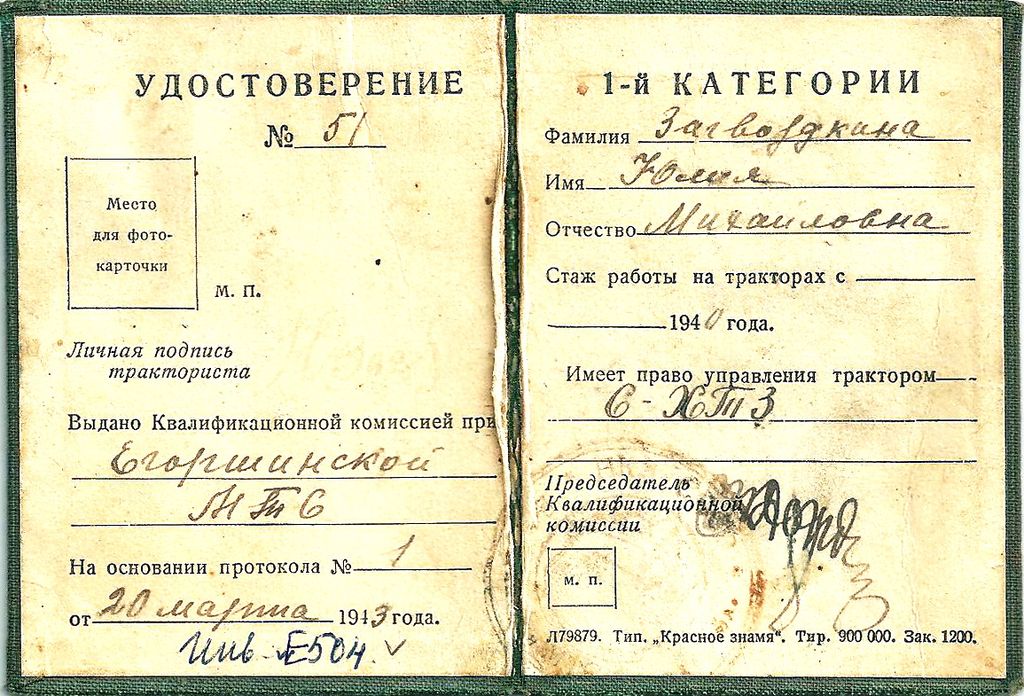 УДОСТОВЕРЕНИЕ
№ 51
Место
для фото-
карточки
М. П.
Личная подпись
тракториста
Выдано Квалификационной комиссией при
Егоршинской
МТС
На основании протокола № 1
от 20 марта 1943 года.
Инв. Е504
1-й КАТЕГОРИИ
Фамилия Загвоздкина
Имя Юлия
Отчество Михаиловна
Стаж работы на тракторах с
1940 года.
Имеет право управления трактором
С-ХТЗ
Председатель
Квалификационной
комиссии
м. п.
Л79879. Тип. „Красное знамя“. Тир. 900 000. Зак. 1200.